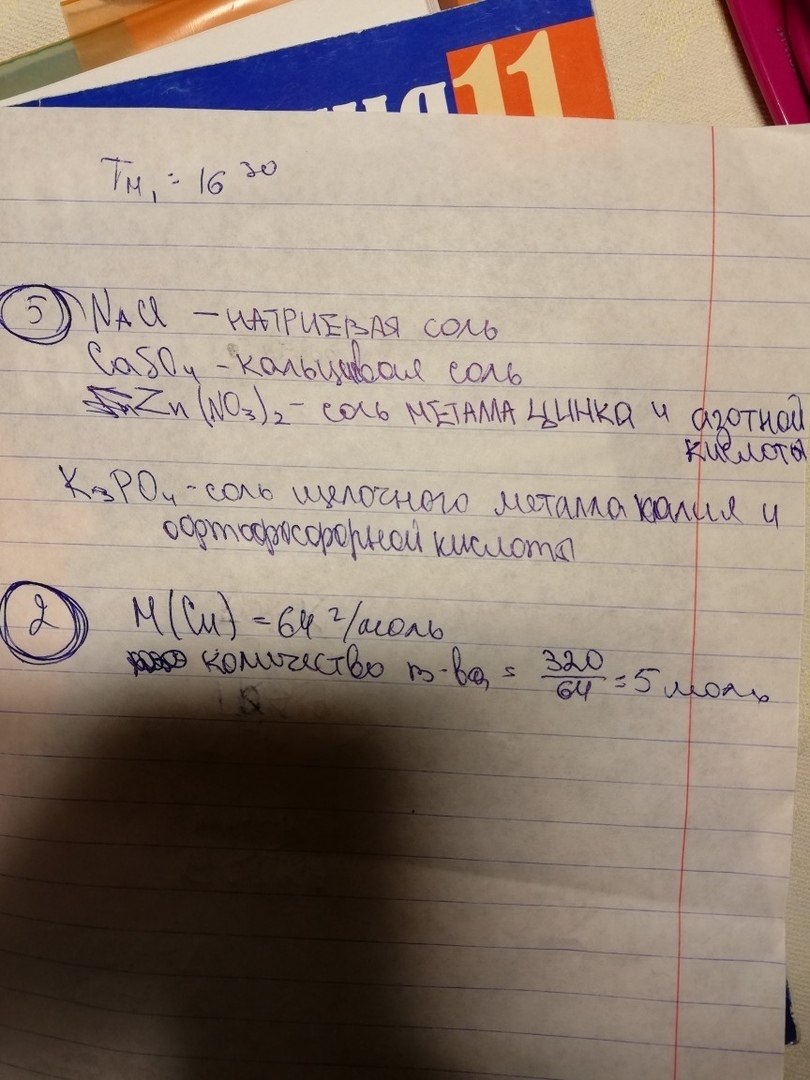 11
Тм, = 16 30
5 NaCl – НАТРИЕВАЯ СОЛЬ
CaSO4 – кальциевая соль
Zn(NO3)2 – соль МЕТАЛЛА ЦИНКА и азотной
кислоты
K3PO4 – соль щелочного металла калия и
ортофосфорной кислоты
2 M(Cu) = 64 г/моль
количество в-ва = 320/64 = 5 моль